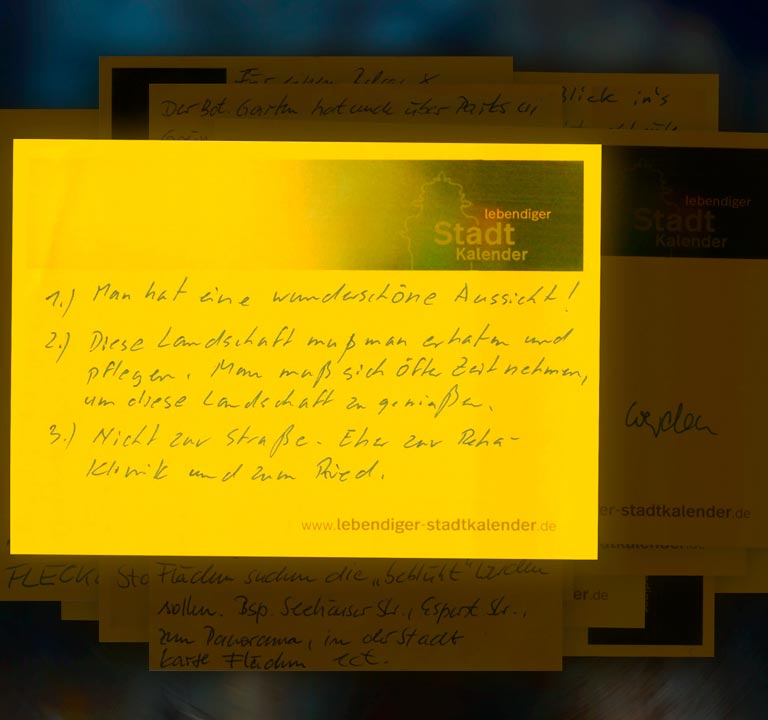 Für einen
Der Bot. Garten hat auch über Parks
Blick in's
lebendiger
Stadt
Kalender
lebendiger
Stadt
Kalender
1.) Man hat eine wunderschöne Aussicht!
2.) Diese Landschaft muß man erhaten und
pflegen. Man muß sich öfter Zeit nehmen,
um diese Landschaft zu genießen.
3.) Nicht zur Straße. Eher zur Reha-
Klinik und zum Ried.
werden
www.lebendiger-stadtkalender.de
er-stadtkalender.de
FLECK Sto
Flächen suchen die „beblüht" werden
er.de
sollen. Bsp. Seehauser Str., Espert Str.,
zum Panorama, in der Stadt
karge Flächen ect.